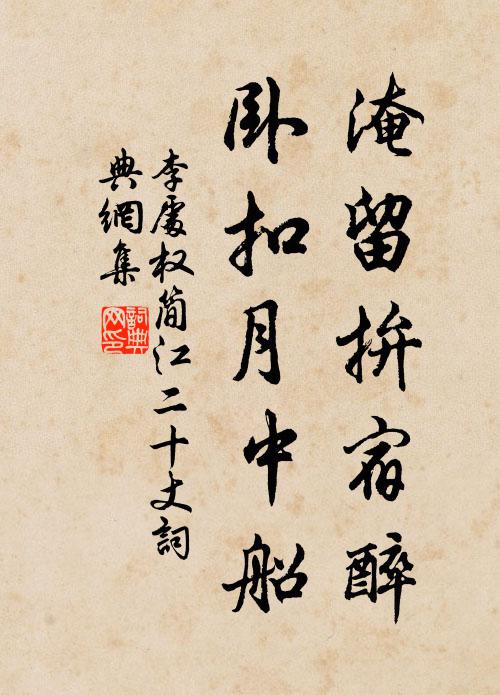 淹留拚宿醉
卧扣月中船
李處权简江二十丈詞
典網集
詞典
网印